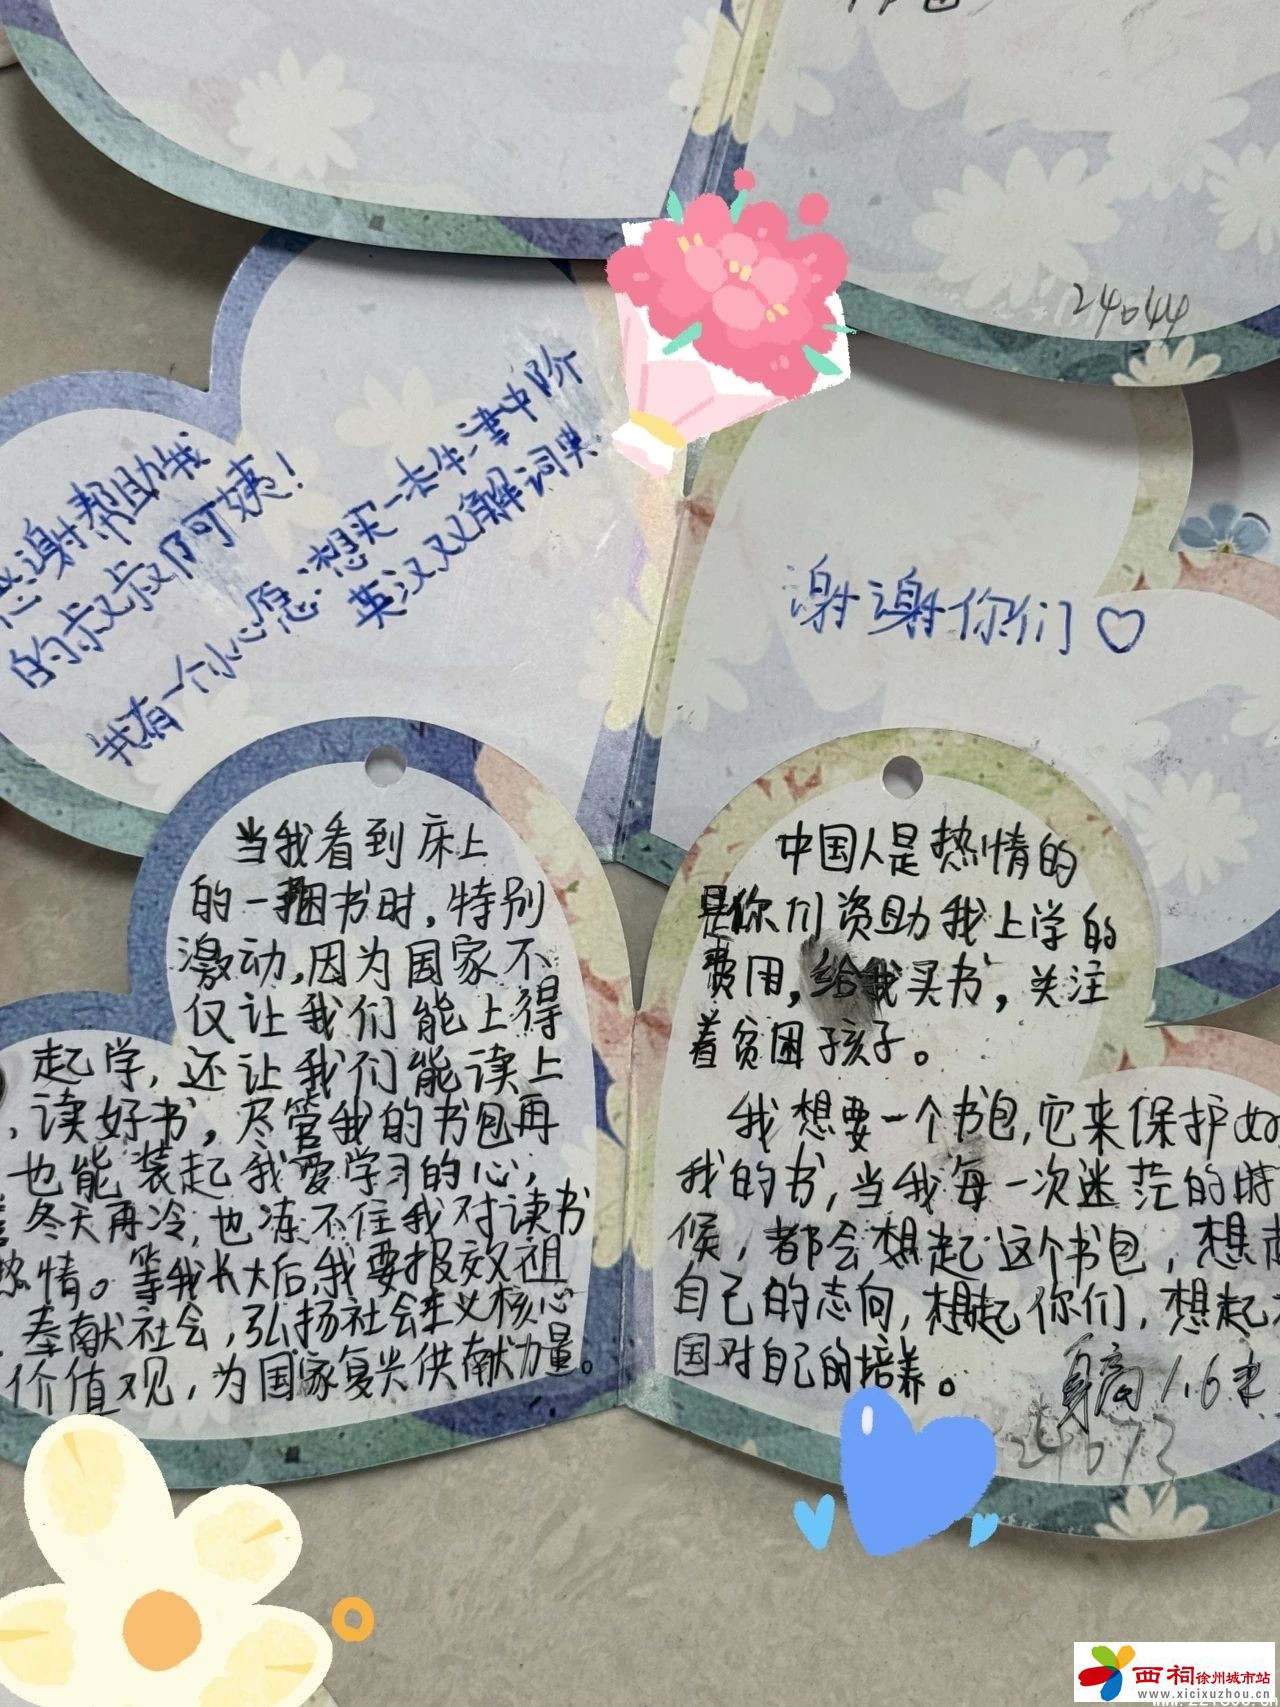 24044
感谢帮助我
的叔叔阿姨！
我有一个小心愿：想买一本牛津中阶
英汉双解词典
谢谢你们♡
当我看到床上
的一捆书时，特别
激动，因为国家不
仅让我们能上得
起学，还让我们能读上
，读好书，尽管我的书包再
也能装起我爱学习的心，
冬天再冷，也冻不住我对读书
热情。等我长大后，我要报效祖
奉献社会，弘扬社会主义核心
价值观，为国家复兴供献力量。
中国人是热情的
是你们资助我上学的
费用，给我买书，关注
着贫困孩子。
我想要一个书包，它来保护好
我的书，当我每一次迷茫的时
候，都会想起这个书包，想起
自己的志向，想起你们，想起
国对自己的培养。
身高1.6米
24073
西祠徐州城市站
www.xicixuzhou.cn